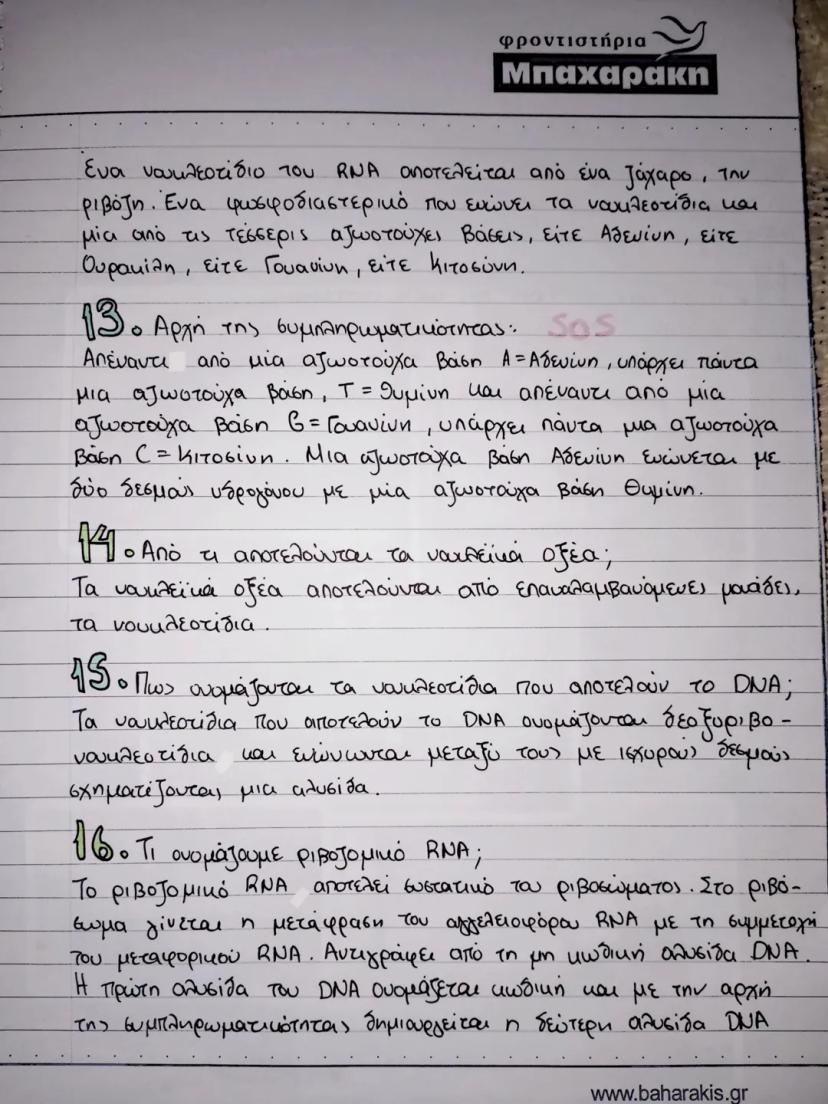 φροντιστήρια
Μπαχαράκη
Ένα νουκλεοτίδιο του RNA αποτελείται από ένα ζάχαρο, την
ριβόζη. Ένα φωσφοδιαστερικό που ενώνει τα νουκλεοτίδια και
μία από τις τέσσερις αζωοτούχες βάσεις, είτε Αδενίνη, είτε
Ουρακίλη, είτε Γουανίνη, είτε Κιτοσύνη.
13. Αρχή της συμπληρωματικότητας: SOS
Απέναντι από μία αζωοτούχα βάση A = Αδενίνη, υπάρχει πάντα
μια αζωοτούχα βάση, T = Θυμίνη και απέναντι από μία
αζωοτούχα βάση G = Γουανίνη, υπάρχει πάντα μια αζωοτούχα
βάση C = Κιτοσίνη. Μια αζωοτούχα βάση Αδενίνη ενώνεται με
δύο δεσμούς υδρογόνου με μία αζωοτούχα βάση Θυμίνη.
14. Από τι αποτελούνται τα νουκλεϊκά οξέα;
Τα νουκλεϊκά οξέα αποτελούνται από επαναλαμβανόμενες μονάδες,
τα νουκλεοτίδια.
15. Πως ονομάζονται τα νουκλεοτίδια που αποτελούν το DNA;
Τα νουκλεοτίδια που αποτελούν το DNA ονομάζονται δεοξυριβο-
νουκλεοτίδια και ενώνωνται μεταξύ τους με ισχυρούς δεσμούς
σχηματίζοντας μια αλυσίδα.
16. Τι ονομάζουμε ριβοζομικό RNA;
Το ριβοζομικό RNA αποτελεί συστατικό του ριβοσώματος. Στο ριβό-
σωμα γίνεται η μετάφραση του αγγελειοφόρου RNA με τη συμμετοχή
του μεταφορικού RNA. Αντιγράφει από τη μη κωδική αλυσίδα DNA.
Η πρώτη αλυσίδα του DNA ονομάζεται κωδική και με την αρχή
της συμπληρωματικότητας δημιουργείται η δεύτερη αλυσίδα DNA
www.baharakis.gr